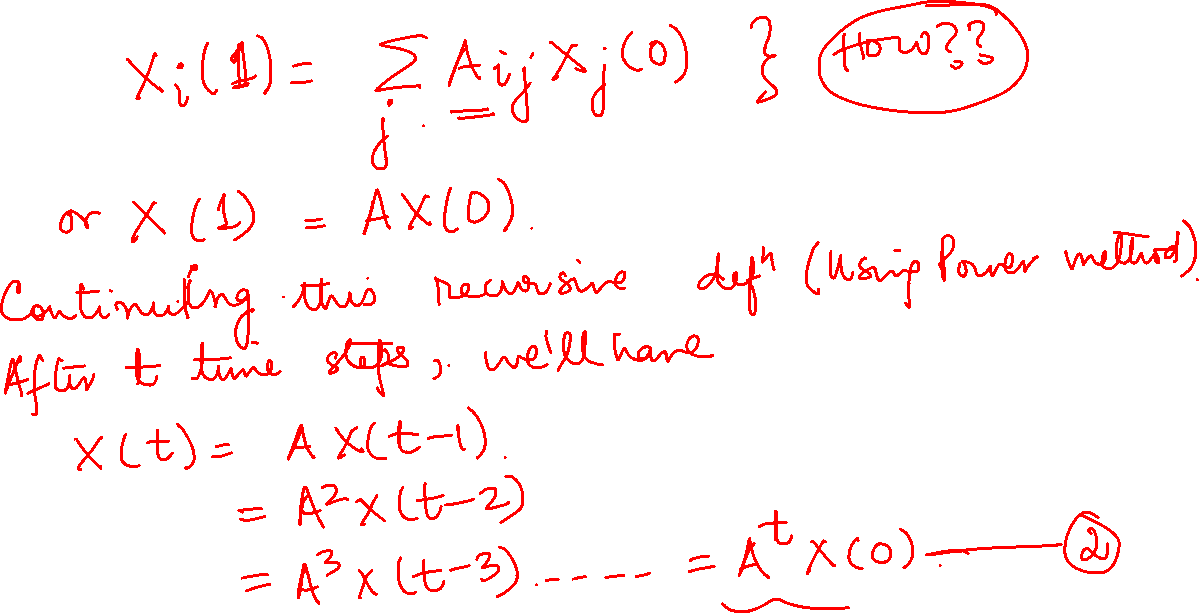 Xi(1) = Σj Aij Xj(0) } How??
or X(1) = AX(0).
Continuing this recursive defⁿ (Using Power method).
After t time steps, we'll have
X(t) = A X(t-1)
= A²X(t-2)
= A³X(t-3) ..... = Aᵗ X(0) — ②